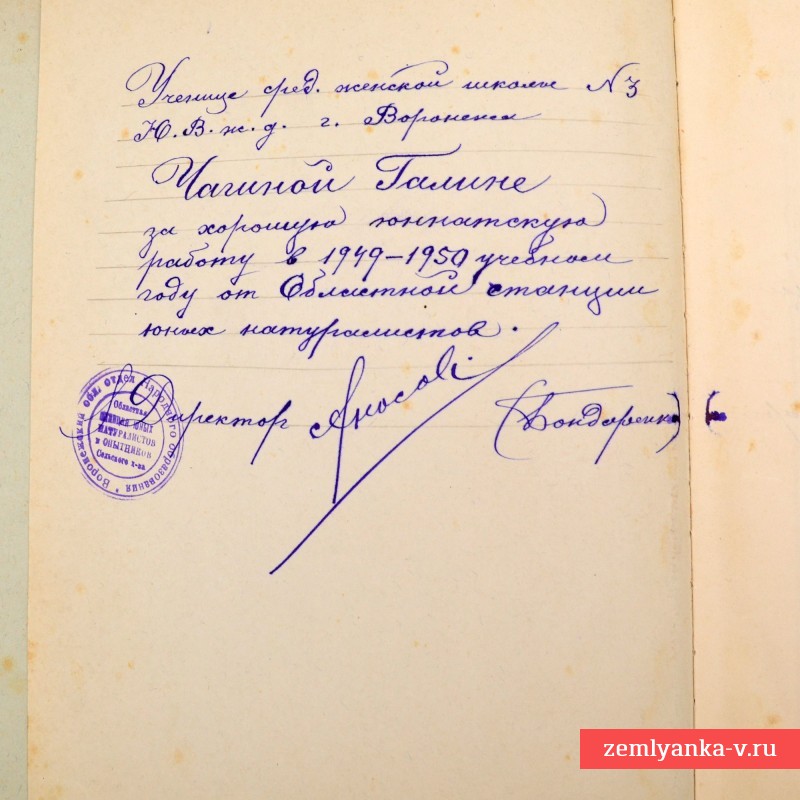 Ученице сред. женской школы № 3
Ю.В.ж.д. г. Воронежа
Чагиной Галине
за хорошую юннатскую
работу в 1949-1950 учебном
году от Областной станции
юных натуралистов.
Директор (Бондаренко)
Воронежский обл. отдел Народного образования
Областная
станция юных
натуралистов
и опытников
Сельского х-ва
zemlyanka-v.ru